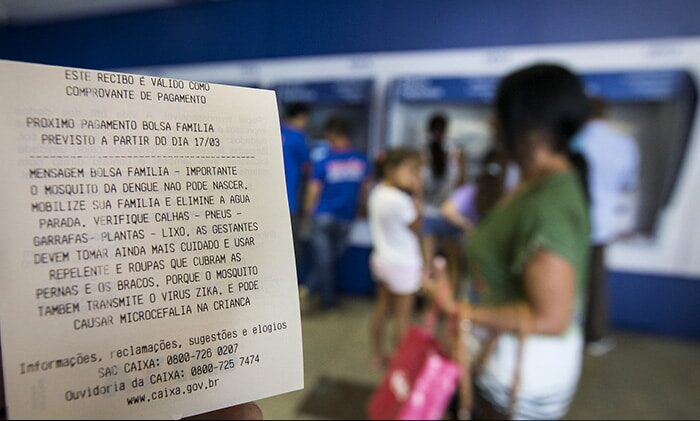 ESTE RECIBO E VALIDO COMO
COMPROVANTE DE PAGAMENTO
PROXIMO PAGAMENTO BOLSA FAMILIA
PREVISTO A PARTIR DO DIA 17/03
MENSAGEM BOLSA FAMILIA - IMPORTANTE
O MOSQUITO DA DENGUE NAO PODE NASCER.
MOBILIZE SUA FAMILIA E ELIMINE A AGUA
PARADA. VERIFIQUE CALHAS - PNEUS -
GARRAFAS- PLANTAS - LIXO. AS GESTANTES
DEVEM TOMAR AINDA MAIS CUIDADO E USAR
REPELENTE E ROUPAS QUE CUBRAM AS
PERNAS E OS BRACOS, PORQUE O MOSQUITO
TAMBEM TRANSMITE O VIRUS ZIKA, E PODE
CAUSAR MICROCEFALIA NA CRIANCA
Informações, reclamações, sugestões e elogios
SAC CAIXA: 0800-726 0207
Ouvidoria da CAIXA: 0800-725 7474
www.caixa.gov.br